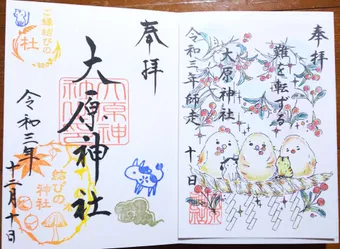 奉拝
難を転ずる
大原神社
令和三年師走
十日
奉拝
大原神社
令和三年
十二月十日
ご縁結びの
社
結びの
神社